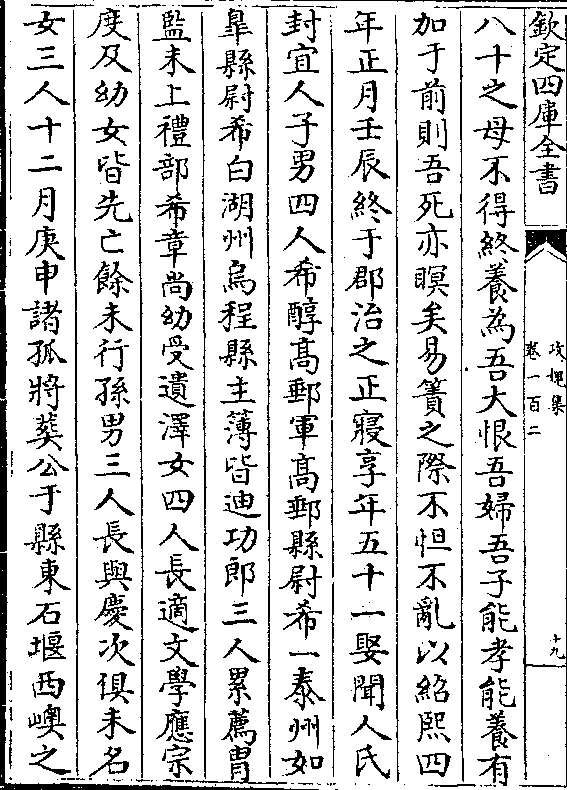 欽定四庫全書
攻媿集
卷一百二
十九
八十之母不得終養為吾大恨吾婦吾子能孝能養有
加于前則吾死亦瞑矣易簀之際不怛不亂以紹熙四
年正月壬辰終于郡治之正寢享年五十一娶聞人氏
封宜人子男四人希醇高郵軍高郵縣尉希一泰州如
臯縣尉希白湖州烏程縣主簿皆迪功郎三人累薦胄
監未上禮部希章尚幼受遺澤女四人長適文學應宗
度及幼女皆先亡餘未行孫男三人長與慶次俱未名
女三人十二月庚申諸孤將葬公于縣東石堰西㠗之